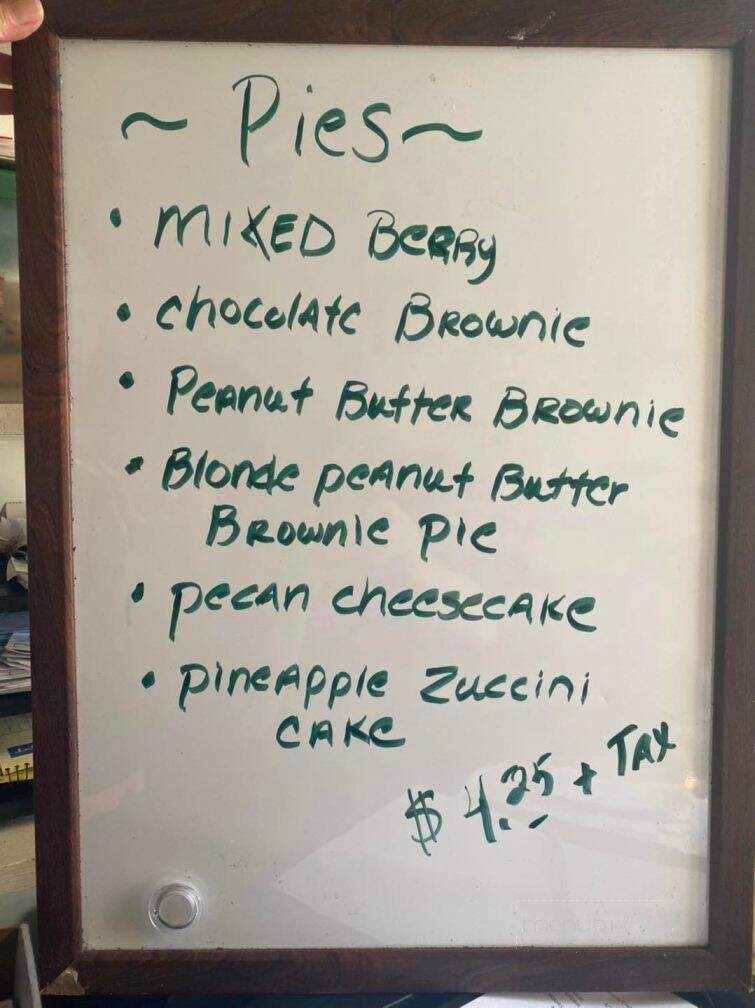 ~ Pies ~
• MIXED BERRY
• CHOCOLATE BROWNIE
• PEANUT BUTTER BROWNIE
• Blonde peanut Butter
BROWNIE PIE
• pecan cheesecake
• pineapple Zuccini
CAKE
$ 4.25 + TAX